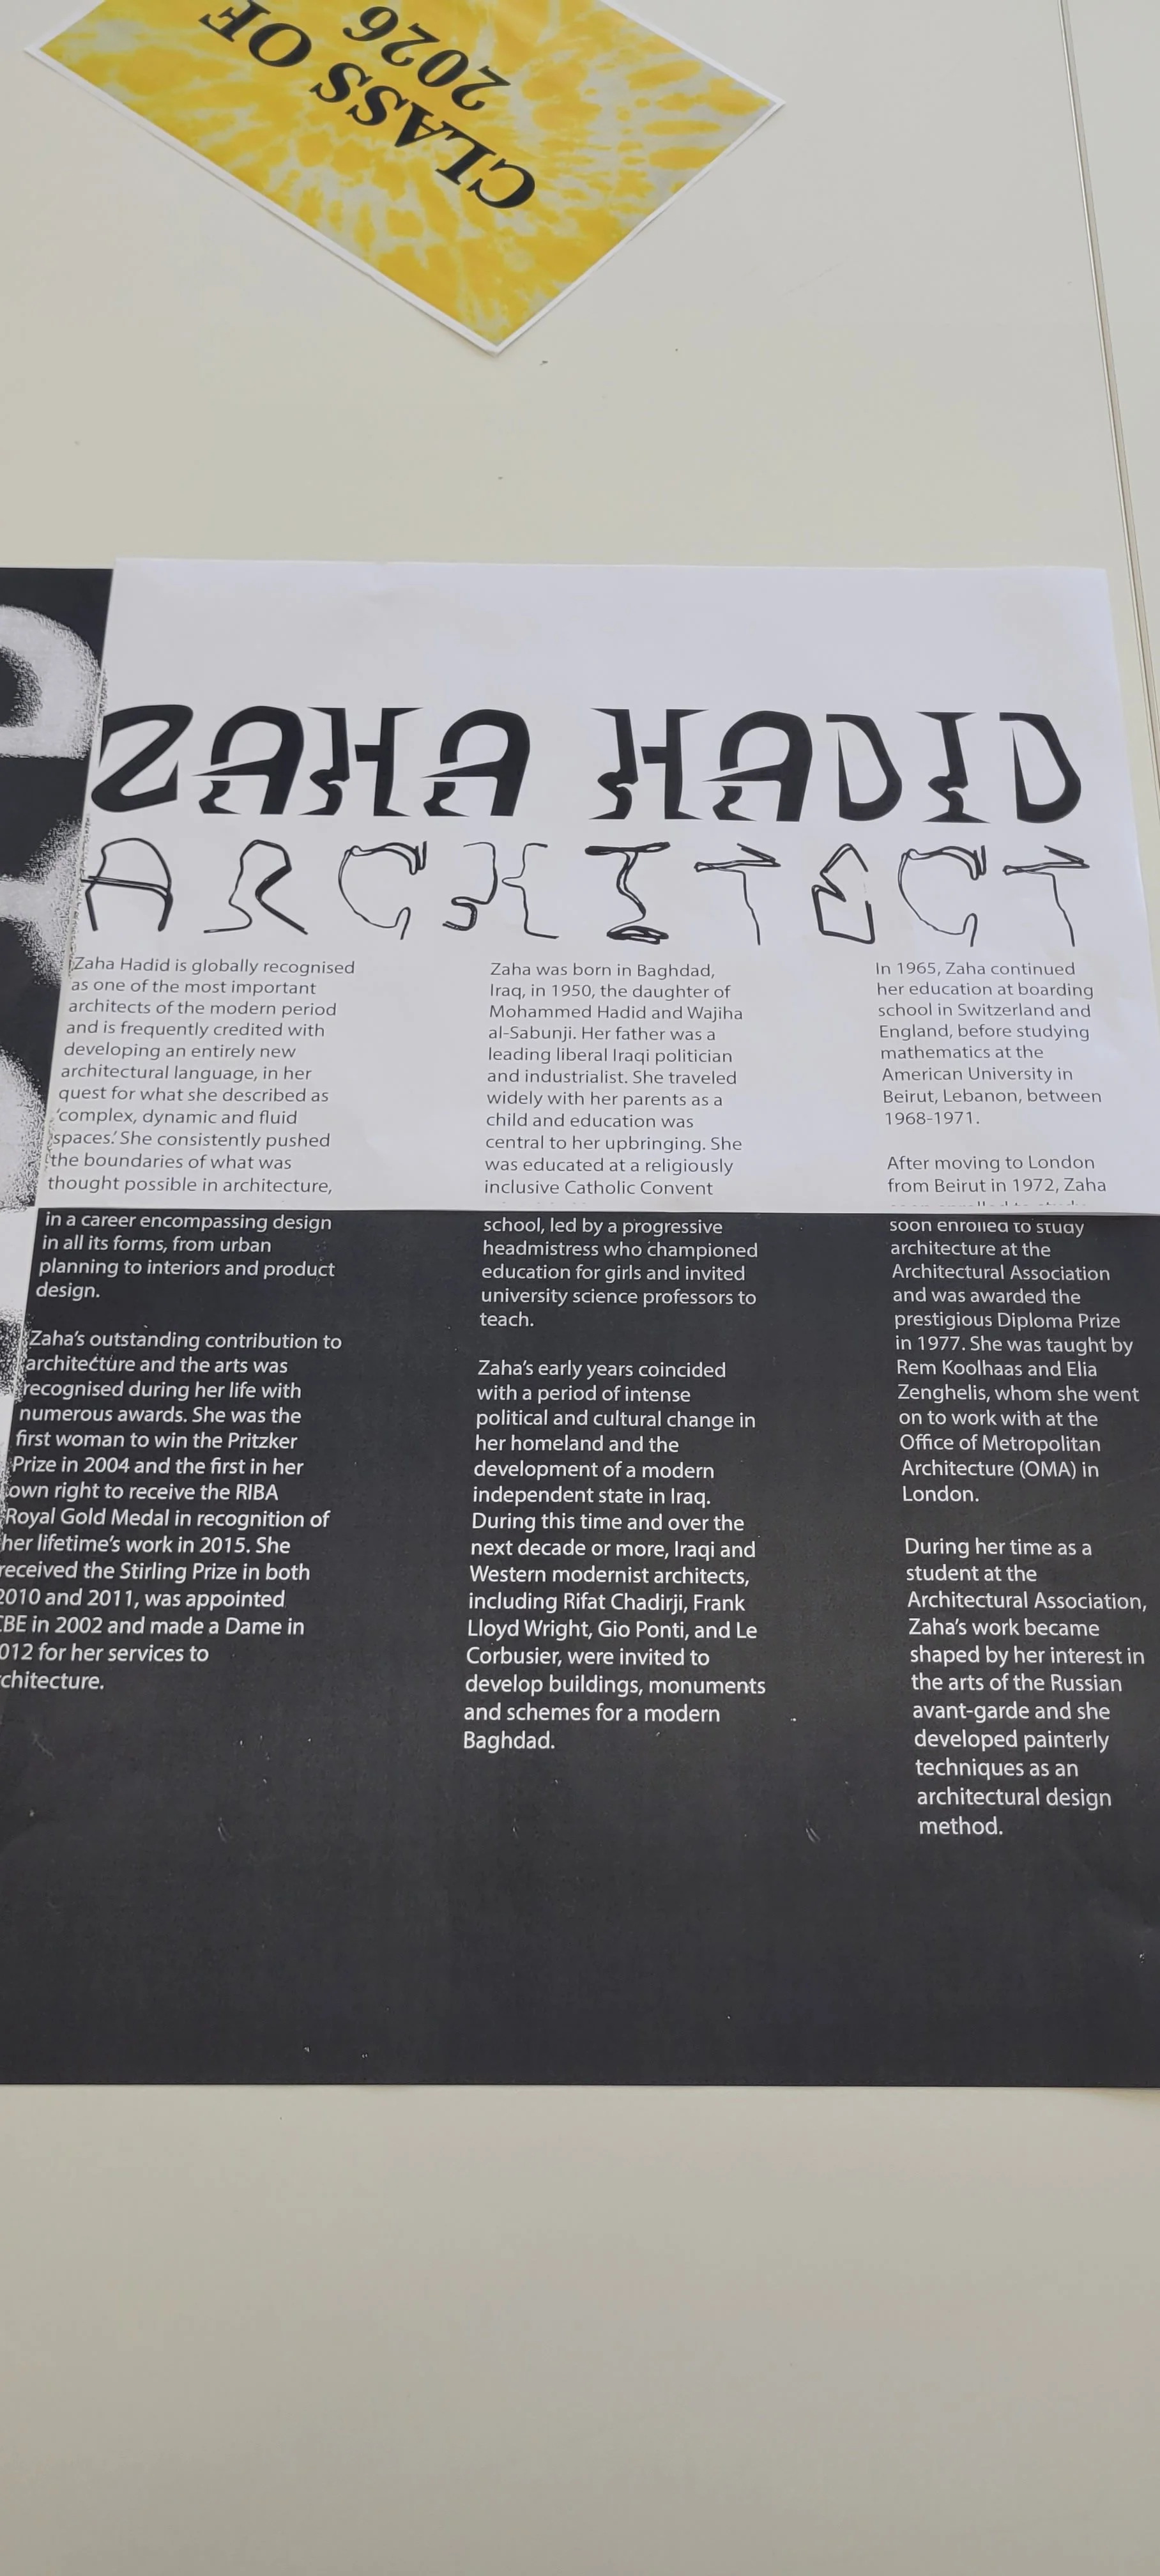 CLASS OF
2026
ZAHA HADID
ARCHITECT
Zaha Hadid is globally recognised
as one of the most important
architects of the modern period
and is frequently credited with
developing an entirely new
architectural language, in her
quest for what she described as
'complex, dynamic and fluid
spaces.' She consistently pushed
the boundaries of what was
thought possible in architecture,
in a career encompassing design
in all its forms, from urban
planning to interiors and product
design.
Zaha's outstanding contribution to
architecture and the arts was
recognised during her life with
numerous awards. She was the
first woman to win the Pritzker
Prize in 2004 and the first in her
own right to receive the RIBA
Royal Gold Medal in recognition of
her lifetime's work in 2015. She
received the Stirling Prize in both
2010 and 2011, was appointed
CBE in 2002 and made a Dame in
012 for her services to
chitecture.
Zaha was born in Baghdad,
Iraq, in 1950, the daughter of
Mohammed Hadid and Wajiha
al-Sabunji. Her father was a
leading liberal Iraqi politician
and industrialist. She traveled
widely with her parents as a
child and education was
central to her upbringing. She
was educated at a religiously
inclusive Catholic Convent
school, led by a progressive
headmistress who championed
education for girls and invited
university science professors to
teach.
Zaha's early years coincided
with a period of intense
political and cultural change in
her homeland and the
development of a modern
independent state in Iraq.
During this time and over the
next decade or more, Iraqi and
Western modernist architects,
including Rifat Chadirji, Frank
Lloyd Wright, Gio Ponti, and Le
Corbusier, were invited to
develop buildings, monuments
and schemes for a modern
Baghdad.
In 1965, Zaha continued
her education at boarding
school in Switzerland and
England, before studying
mathematics at the
American University in
Beirut, Lebanon, between
1968-1971.
After moving to London
from Beirut in 1972, Zaha
soon enrolled to study
architecture at the
Architectural Association
and was awarded the
prestigious Diploma Prize
in 1977. She was taught by
Rem Koolhaas and Elia
Zenghelis, whom she went
on to work with at the
Office of Metropolitan
Architecture (OMA) in
London.
During her time as a
student at the
Architectural Association,
Zaha's work became
shaped by her interest in
the arts of the Russian
avant-garde and she
developed painterly
techniques as an
architectural design
method.